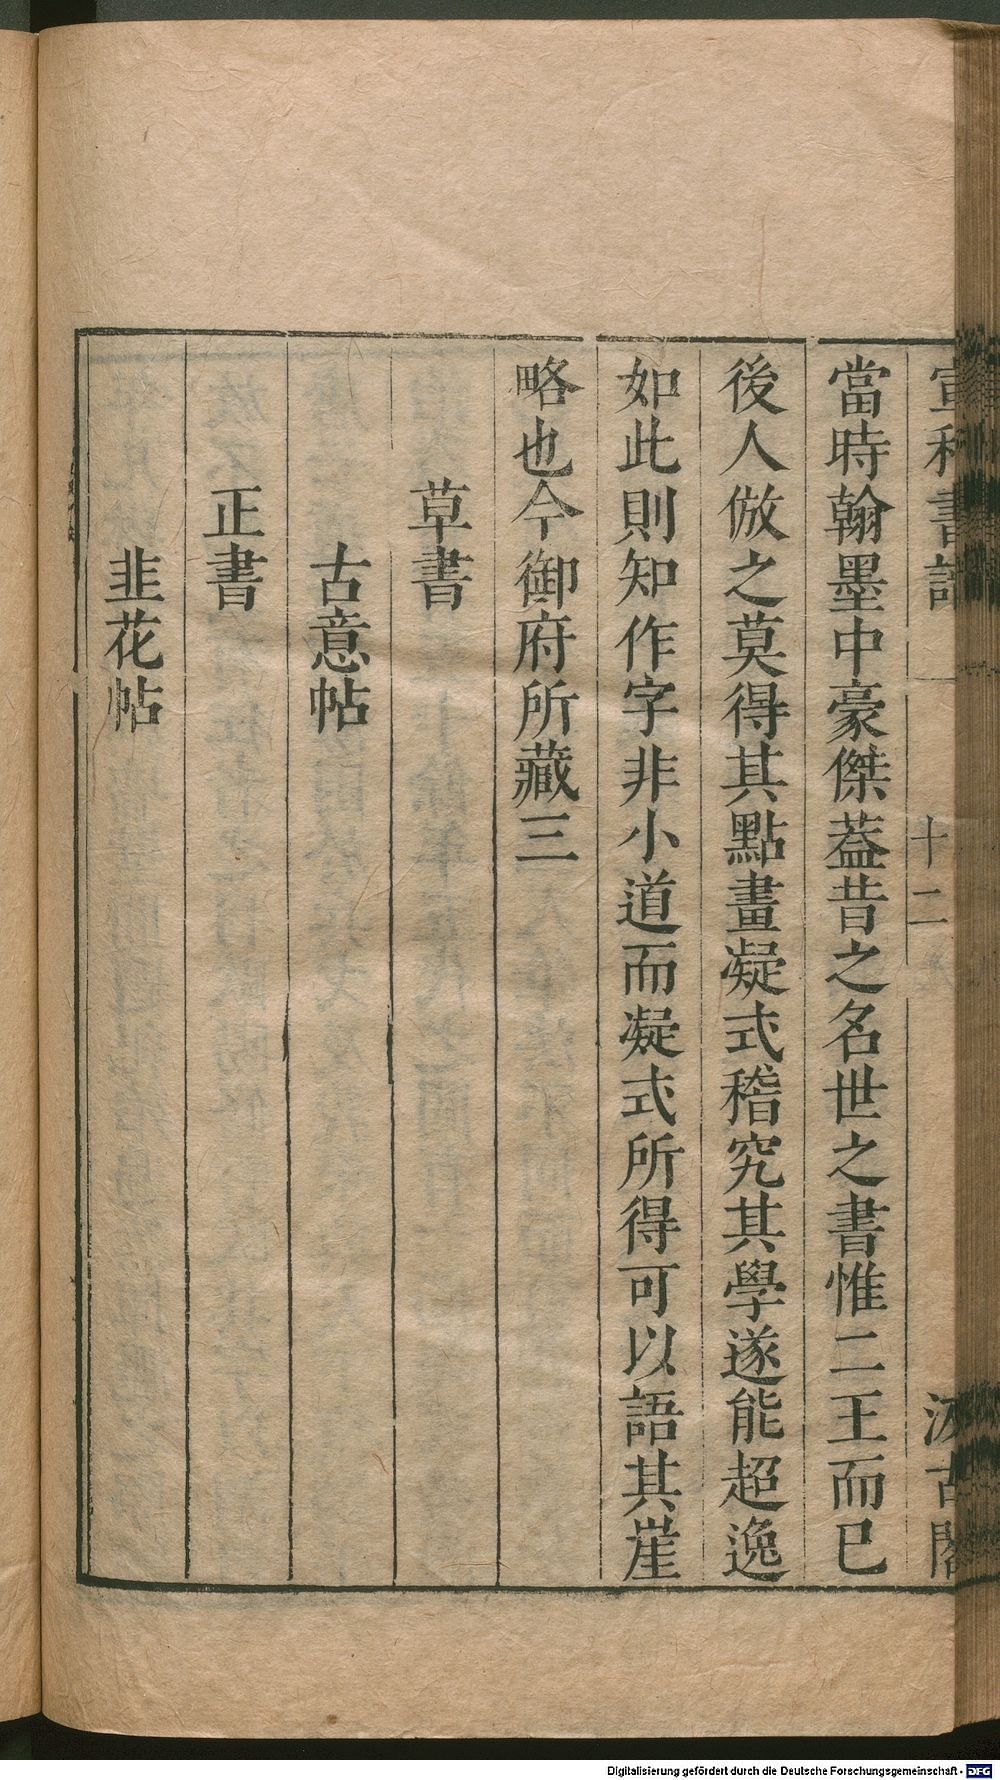 宣和書譜
十二
汲古閣
當時翰墨中豪傑葢昔之名世之書惟二王而已
後人倣之莫得其點畫凝式稽究其學遂能超逸
如此則知作字非小道而凝式所得可以語其崖
略也今御府所藏三
草書
古意帖
正書
韭花帖
Digitalisierung gefördert durch die Deutsche Forschungsgemeinschaft - DFG